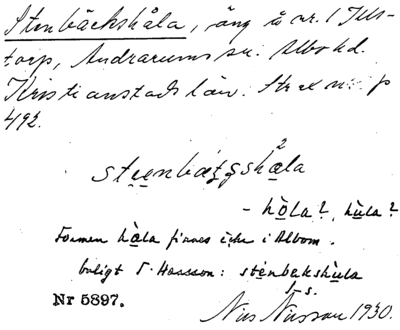 Stenbäckshåla, äng å nr. 1 Juls-
torp, Andrarums sn. Albo hd.
Kristianstads län. Str ex nr p
492.
steenbäʒʒshåla
2
– hòla?, hùla?
Formen hàla finnes icke i Albom.
boligt T. Hansson: sténbekshùla
s.
Nr 5897.
Nils Nilsson 1930.